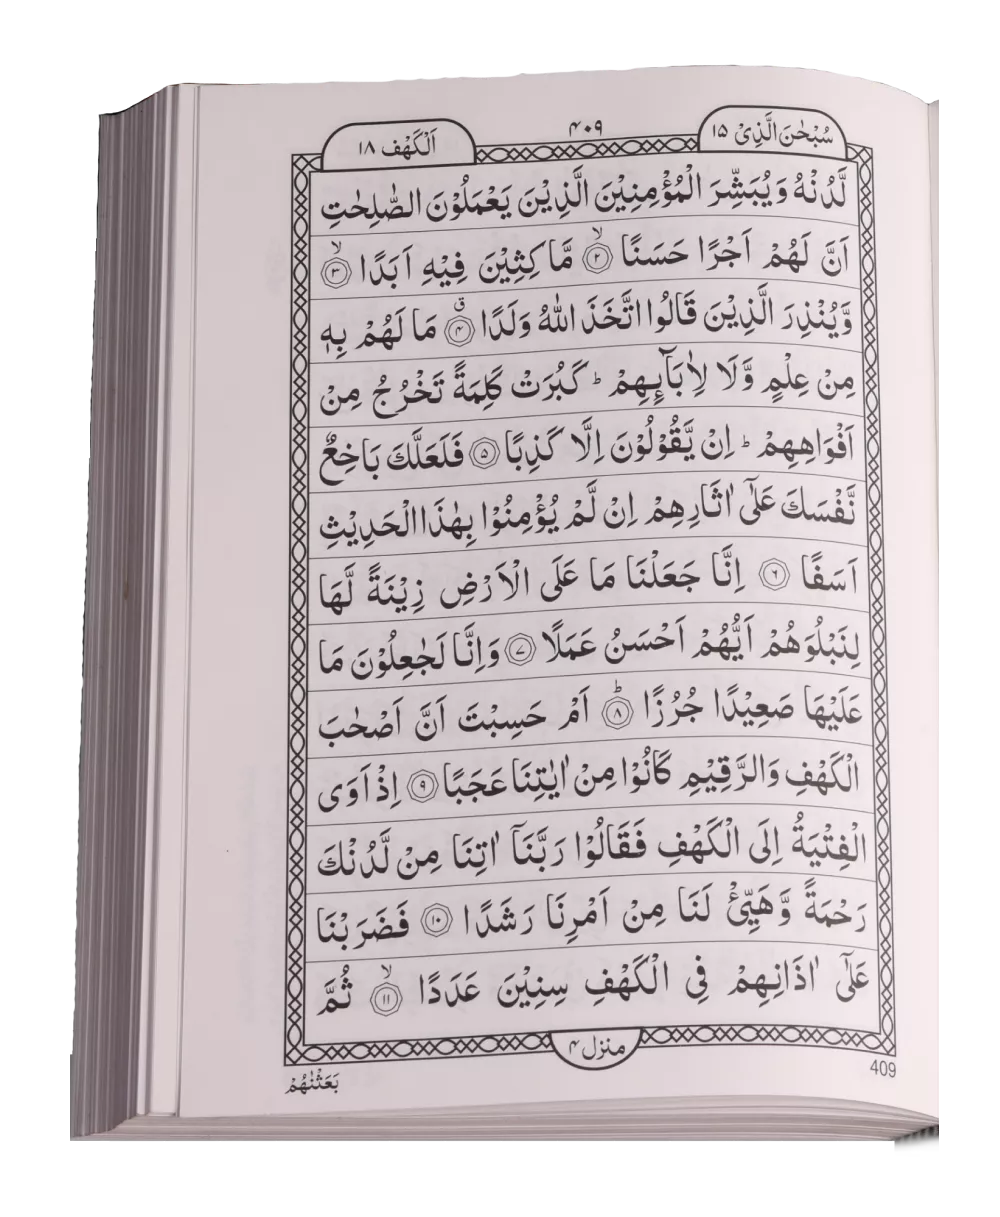 سُبْحٰنَ الَّذِیْۤ ۱۵
۴۰۹
اَلْكَهْف ۱۸
لَّدُنْهُ وَ یُبَشِّرَ الْمُؤْمِنِیْنَ الَّذِیْنَ یَعْمَلُوْنَ الصّٰلِحٰتِ
اَنَّ لَهُمْ اَجْرًا حَسَنًا ۙ‏﴿۲﴾ مَّاكِثِیْنَ فِیْهِ اَبَدًا ۙ‏﴿۳﴾
وَّ یُنْذِرَ الَّذِیْنَ قَالُوا اتَّخَذَ اللّٰهُ وَلَدًا ۗ‏﴿۴﴾ مَا لَهُمْ بِهٖ
مِنْ عِلْمٍ وَّ لَا لِاٰبَآىِٕهِمْ ؕ كَبُرَتْ كَلِمَةً تَخْرُجُ مِنْ
اَفْوَاهِهِمْ ؕ اِنْ یَّقُوْلُوْنَ اِلَّا كَذِبًا ﴿۵﴾ فَلَعَلَّكَ بَاخِعٌ
نَّفْسَكَ عَلٰۤی اٰثَارِهِمْ اِنْ لَّمْ یُؤْمِنُوْا بِهٰذَا الْحَدِیْثِ
اَسَفًا ﴿۶﴾ اِنَّا جَعَلْنَا مَا عَلَی الْاَرْضِ زِیْنَةً لَّهَا
لِنَبْلُوَهُمْ اَیُّهُمْ اَحْسَنُ عَمَلًا ﴿۷﴾ وَ اِنَّا لَجٰعِلُوْنَ مَا
عَلَیْهَا صَعِیْدًا جُرُزًا ؕ‏﴿۸﴾ اَمْ حَسِبْتَ اَنَّ اَصْحٰبَ
الْكَهْفِ وَ الرَّقِیْمِ كَانُوْا مِنْ اٰیٰتِنَا عَجَبًا ﴿۹﴾ اِذْ اَوَی
الْفِتْیَةُ اِلَی الْكَهْفِ فَقَالُوْا رَبَّنَاۤ اٰتِنَا مِنْ لَّدُنْكَ
رَحْمَةً وَّ هَیِّئْ لَنَا مِنْ اَمْرِنَا رَشَدًا ﴿۱۰﴾ فَضَرَبْنَا
عَلٰۤی اٰذَانِهِمْ فِی الْكَهْفِ سِنِیْنَ عَدَدًا ۙ‏﴿۱۱﴾ ثُمَّ
منزل ۴
بَعَثْنٰهُمْ
409